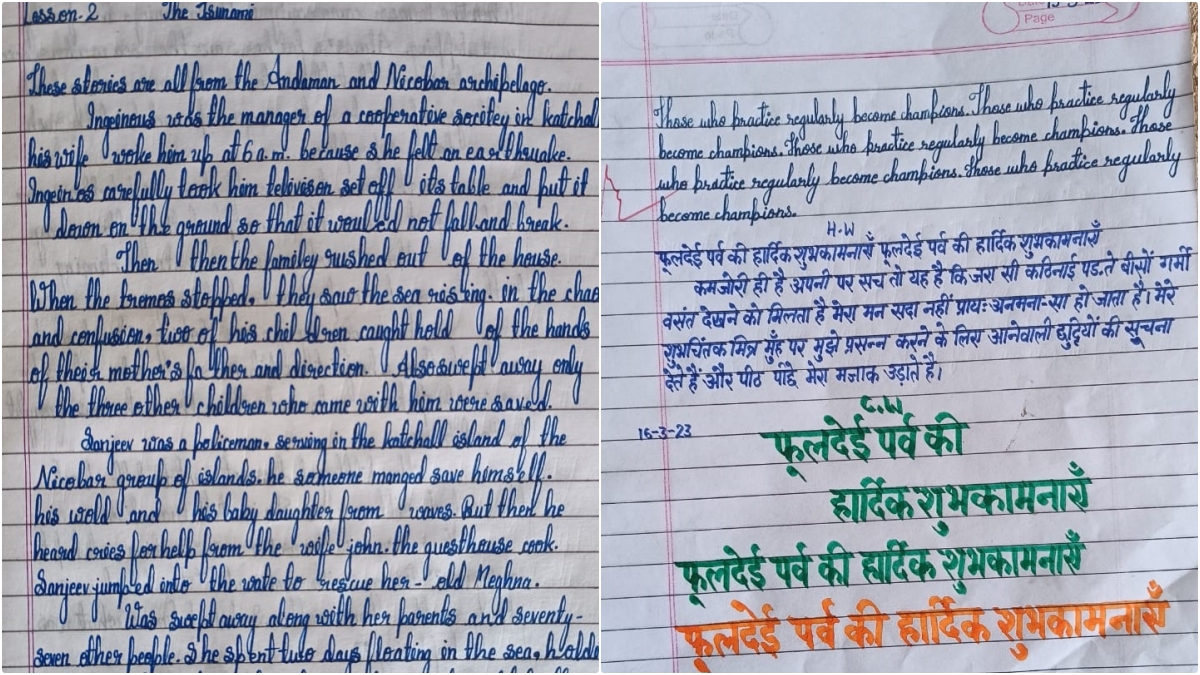 Lesson-2 The Tsunami
These stories are all from the Andaman and Nicobar archipelago.
Ingeinous was the manager of a cooperative socitey in katchal
his wife woke him up at 6 a.m. because she felt an earthquake.
Ingein'os carefully took him television set off its table and put it
down on the ground so that it woulled not fall and break.
Then then the familey rushed out of the house.
When the tremos stopped, they saw the sea risting. in the chao
and confusion, two of his chil ldren caught hold of the hands
of their mother's fa ther and direction. Also swept away only
the three other children who came with him were saved.
Sanjeev was a policeman. serving in the katchall island of the
Nicobar group of islands. he someone manged save himself.
his and his baby daughter from waves. But then he
heard cries for help from the wife john. the guesthouse cook.
Sanjeev jumped into the wate to rescue her - old Meghna.
Was swept away along with her parents and seventy-
seven other people. She spent two days floating in the sea, holdi
Page
Those who practice regularly become champions. Those who practice regularly
become champions. Those who practice regularly become champions. Those
who practice regularly become champions. Those who practice regularly
become champions.
H.W
फूलदेई पर्व की हार्दिक शुभकामनाएँ फूलदेई पर्व की हार्दिक शुभकामनाएँ
कमजोरी ही है अपनी पर सच तो यह है कि जरा सी कठिनाई पड.ते बीसों गर्मी
वसंत देखने को मिलता है मेरा मन सदा नहीं प्राय: अनमना-सा हो जाता है। मेरे
शुभचिंतक मित्र मुँह पर मुझे प्रसन्न करने के लिए आनेवाली छुट्टियों की सूचना
देते हैं और पीठ पीछे मेरा मजाक उड़ाते है।
C.W
16-3-23
फूलदेई पर्व की
हार्दिक शुभकामनाएँ
फूलदेई पर्व की हार्दिक शुभकामनाएँ
फूलदेई पर्व की हार्दिक शुभकामनाएँ